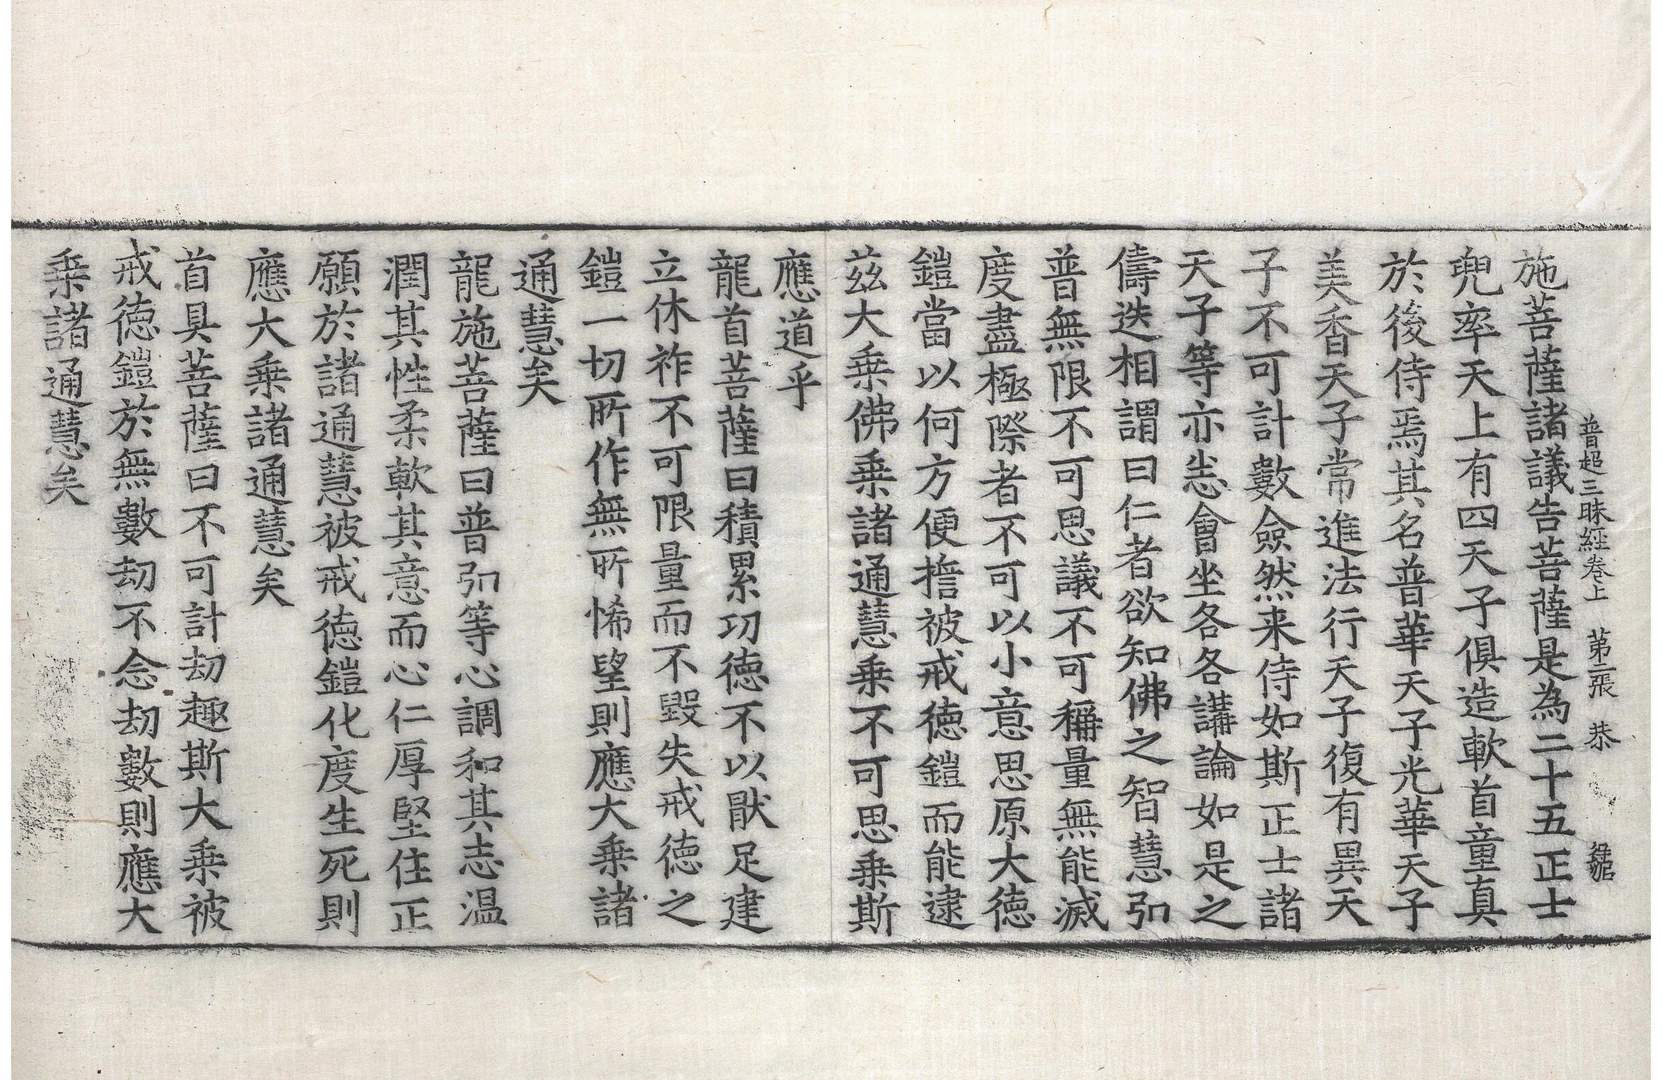 普超三昧經卷上　第二張　恭
施菩薩諸議告菩薩是為二十五正士
兜率天上有四天子俱造軟首童真
於後侍焉其名普華天子光華天子
美香天子常進法行天子復有異天
子不可計數僉然来侍如斯正士諸
天子等亦悉會坐各各講論如是之
儔迭相謂曰仁者欲知佛之智慧弘
普無限不可思議不可稱量無能滅
度盡極際者不可以小意思原大德
鎧當以何方便擔被戒德鎧而能逮
茲大乘佛乘諸通慧乘不可思乘斯
應道乎
龍首菩薩曰積累功德不以猒足建
立休祚不可限量而不毀失戒德之
鎧一切所作無所悕望則應大乘諸
通慧矣
龍施菩薩曰普弘等心調和其志温
潤其性柔軟其意而心仁厚堅住正
願於諸通慧被戒德鎧化度生死則
應大乘諸通慧矣
首具菩薩曰不可計劫趣斯大乘被
戒德鎧於無數劫不念劫數則應大
乘諸通慧矣